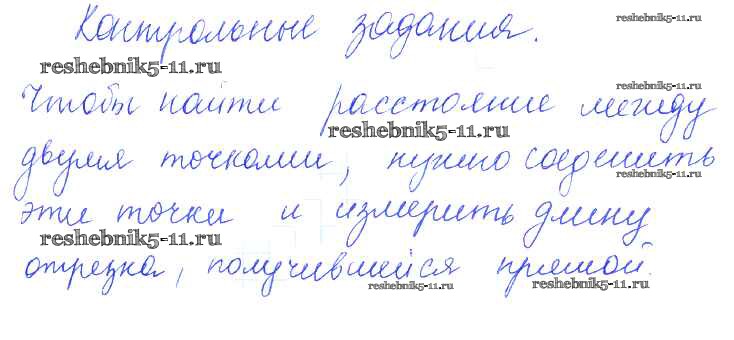 Контрольные задания.
reshebnik5-11.ru
reshebnik5-11.ru
reshebnik5-11.ru
Чтобы найти расстояние между
reshebnik5-11.ru
двумя точками, нужно соединить
reshebnik5-11.ru
эти точки и измерить длину
reshebnik5-11.ru
отрезка, получившейся прямой.
reshebnik5-11.ru
reshebnik5-11.ru